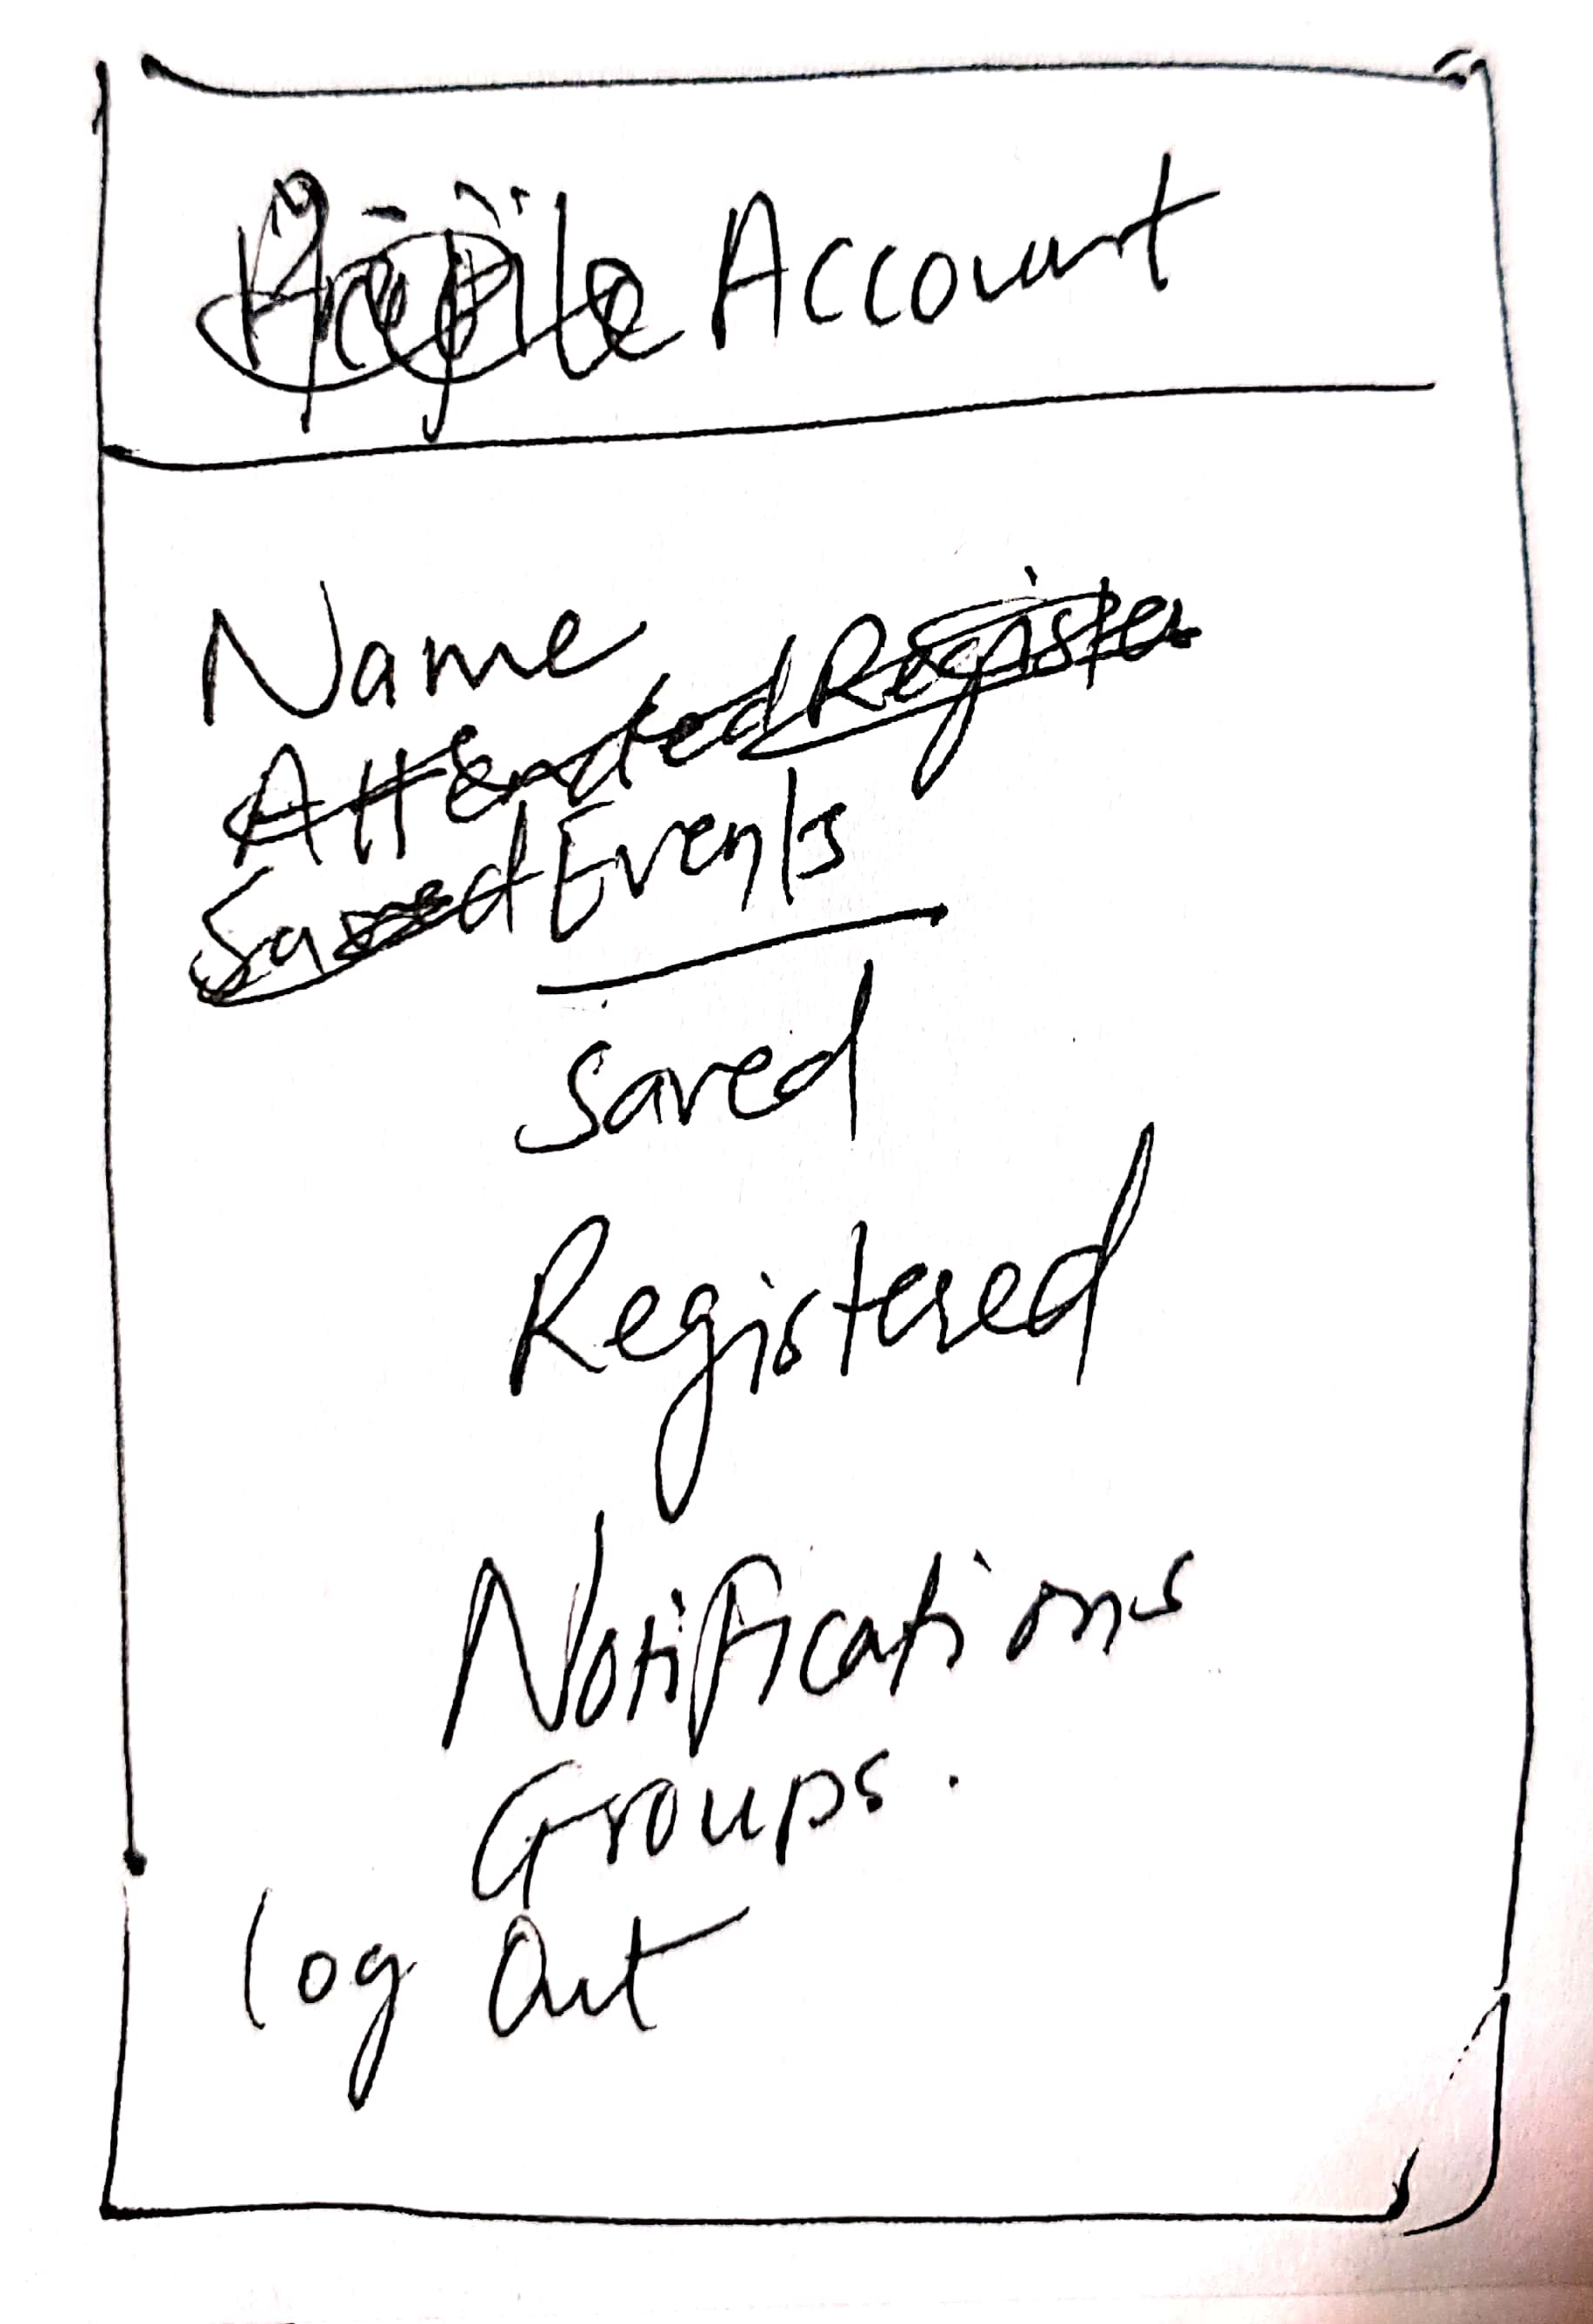 Profile Account
Name
Attended Register
Saved Events
Saved
Registered
Notifications
Groups.
log Out